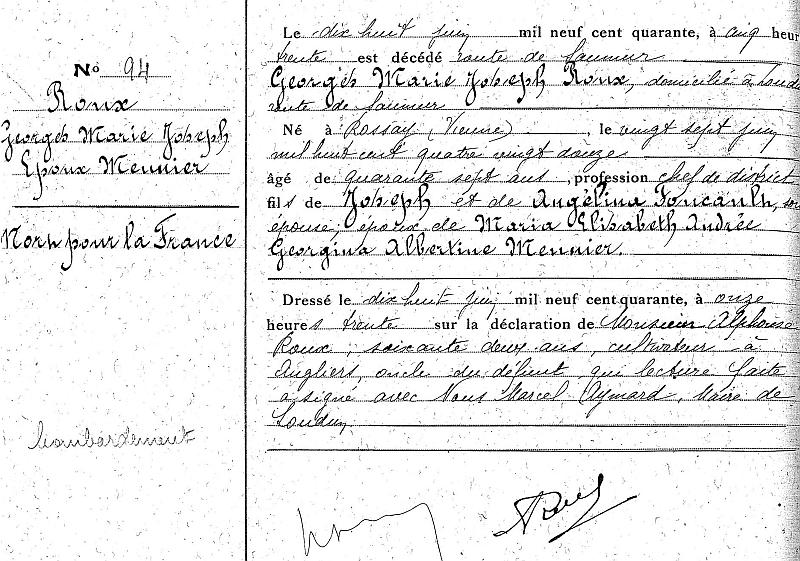 No 94
Roux
Georges Marie Joseph
Epoux Meunier
Mort pour la France
bombardement
Le dix huit juin mil neuf cent quarante, à cinq heur
trente est décédé route de Saumur
Georges Marie Joseph Roux, domicilié à Loudu
route de Saumur
Né à Rossay (Vienne), le vingt sept juin
mil huit cent quatre vingt douze
âgé de quarante sept ans, profession chef de district
fils de Joseph et de Angélina Foucault, son
épouse; époux de Maria Elisabeth Andrée
Georgina Albertine Meunier.
Dressé le dix huit juin mil neuf cent quarante, à onze
heures trente sur la déclaration de Monsieur Alphonse
Roux, soixante deux ans, cultivateur à
Angliers, oncle du défunt, qui lecture faite
a signé avec Nous Marcel Aymard, Maire de
Loudun